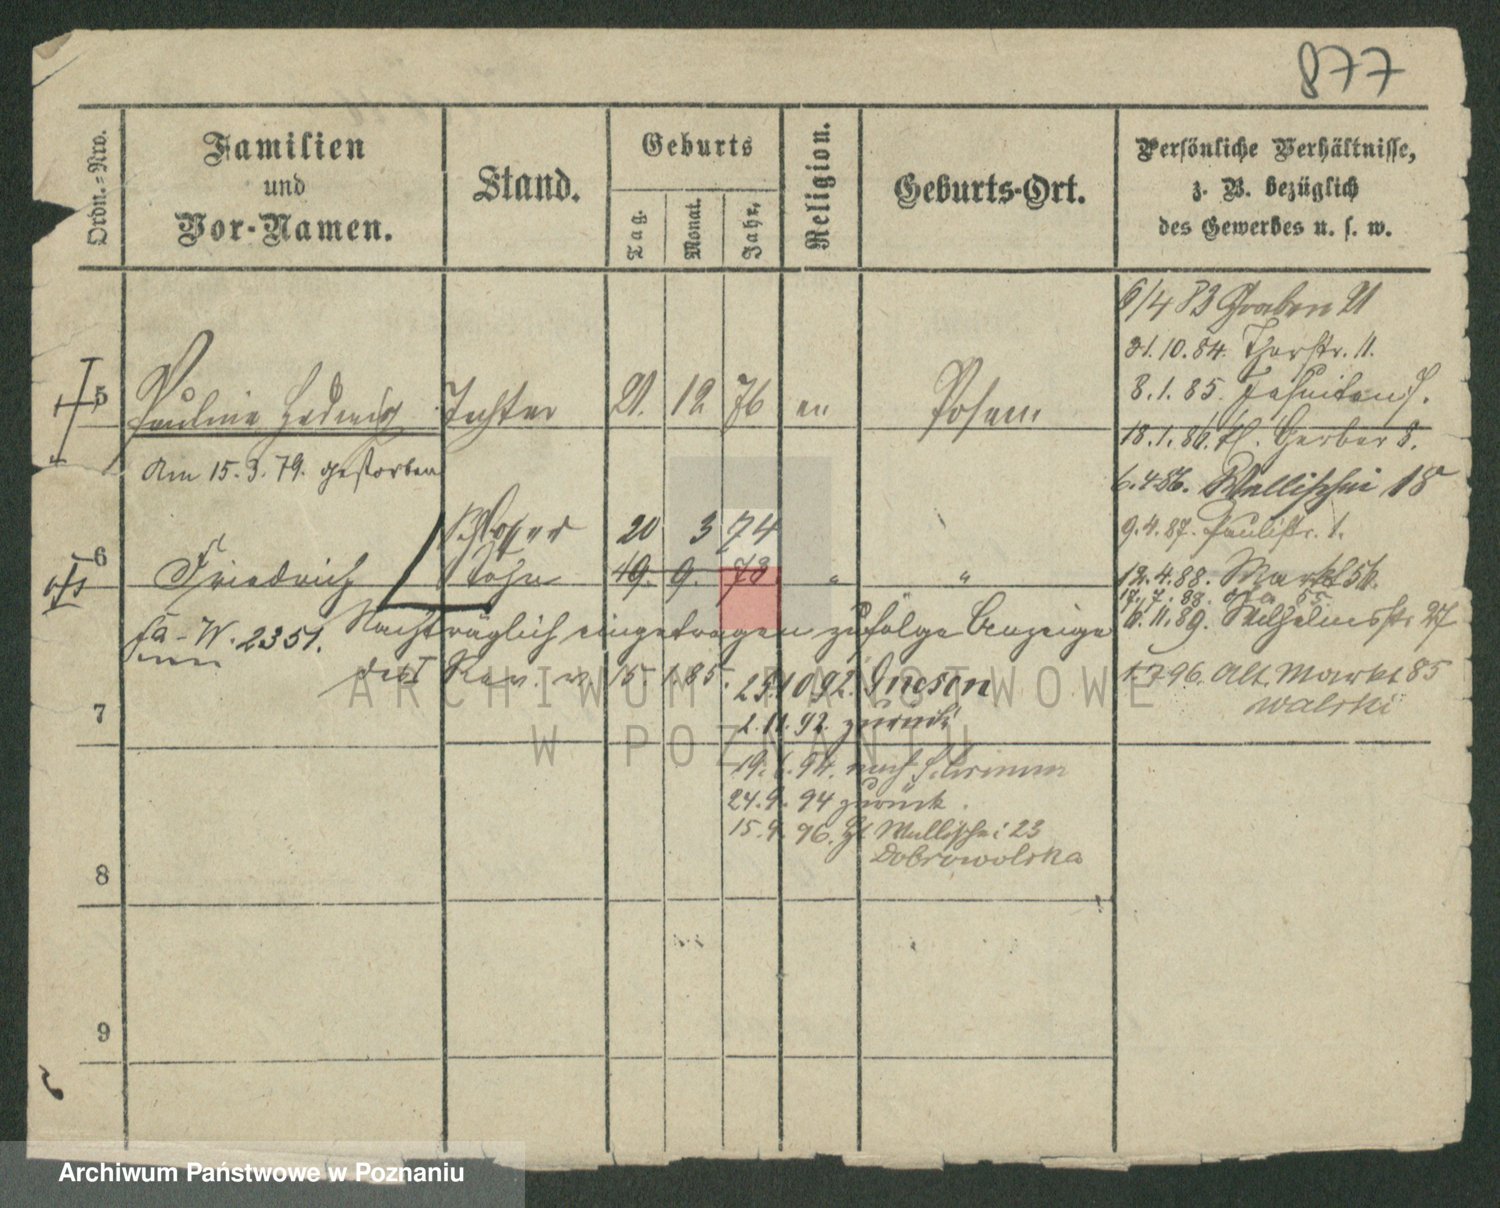 877
Ordn.-Nro.
Familien
und
Vor-Namen.
Stand.
Geburts
Tag.
Monat.
Jahr.
Religion.
Geburts-Ort.
Persönliche Verhältnisse,
z. B. bezüglich
des Gewerbes u. s. w.
6/4 83 Graben 21
31.10.84. Thorstr. 11.
8.1.85.
5 Pauline Hedwig Tochter 21. 12 76 ev Posen
18.1.86. Gerber 8.
Am 15.3.79. gestorben
6.4.86. Wallischei 18
20 3 74
9.4.87. Paulistr. 1.
6 Friedrich Sohn 19. 9. 73 " "
12.4.88. Markt 56.
17.7.88. 55
Nachträglich eingetragen zufolge Anzeige
10.11.89. Wilhelmsstr. 27
W. 2351.
des Rev. v. 15.1.85.
23.10 92. Gnesen
1.7.96. Alt. Markt 85
walski
7
2.11.92. zurück
19. 94. nach
24.9.94 zurück.
15.9.96. Wallischei 23
Dobrowolska
8
9
ARCHIWUM PAŃSTWOWE
W POZNANIU
Archiwum Państwowe w Poznaniu